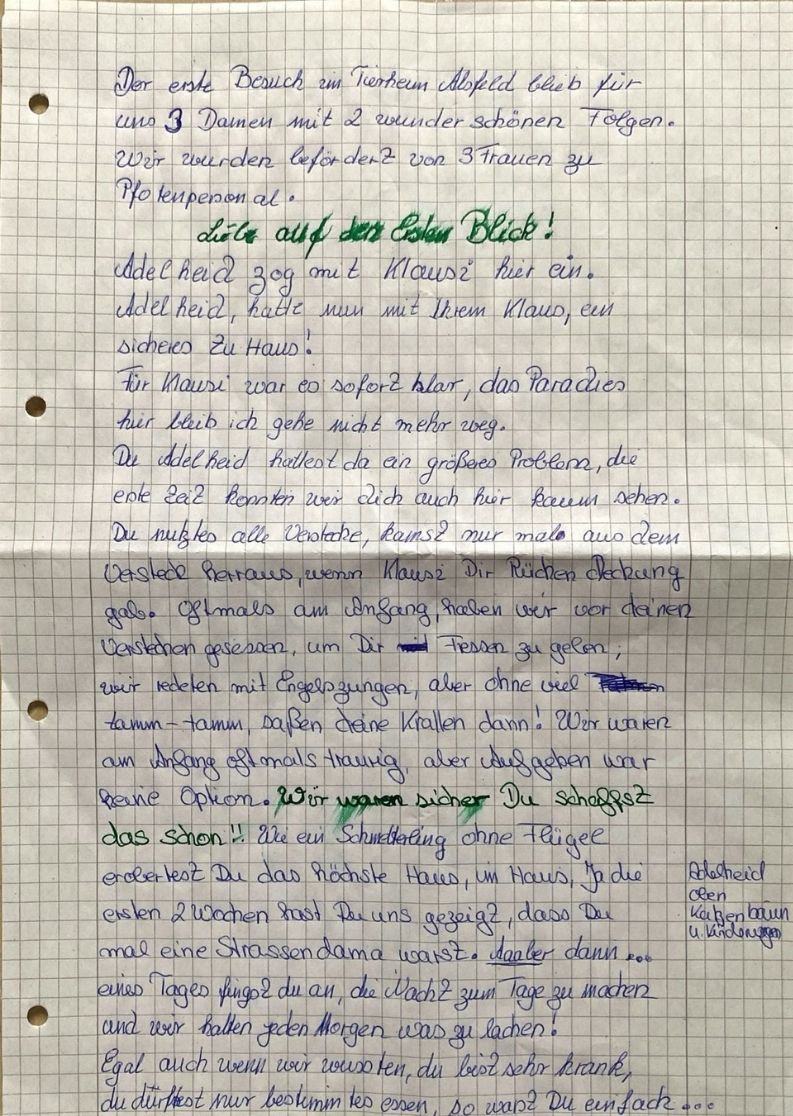 Der erste Besuch im Tierheim Alsfeld blieb für
uns 3 Damen mit 2 wunder schönen Folgen.
Wir wurden befördert von 3 Frauen zu
Pfotenpersonal.
Liebe auf den Ersten Blick!
Adelheid zog mit Klausi hier ein.
Adelheid, hatte nun mit Ihrem Klaus, ein
sicheres Zu Haus!
Für Klausi war es sofort klar, das Paradies
hier bleib ich gehe nicht mehr weg.
Du Adelheid hattest da ein größeres Problem, die
erste Zeit konnten wir dich auch hier kaum sehen.
Du nutztes alle Verstecke, kamst nur mals aus dem
Versteck herraus, wenn Klausi Dir Rücken deckung
gab. Oftmals am Anfang, haben wir vor deinen
Verstecken gesessen, um Dir Fressen zu geben;
wir redeten mit Engelszungen, aber ohne viel
tamm-tamm, saßen deine Krallen dann! Wir waren
am Anfang oftmals traurig, aber Aufgeben war
keine Option. Wir waren sicher Du schaffst
das schon!! Wie ein Schmetterling ohne Flügel
erobertest Du das höchste Haus, im Haus, Ja die
ersten 2 Wochen hast Du uns gezeigt, dass Du
mal eine Strassendama warst. Aaaber dann ...
eines Tages fingst du an, die Nacht zum Tage zu machen
und wir hatten jeden Morgen was zu lachen!
Egal auch wenn wir wussten, du bist sehr krank,
du dürftest nur bestimmtes essen, so warst Du einfach ...
Adelheid
oben
Katzenbaum